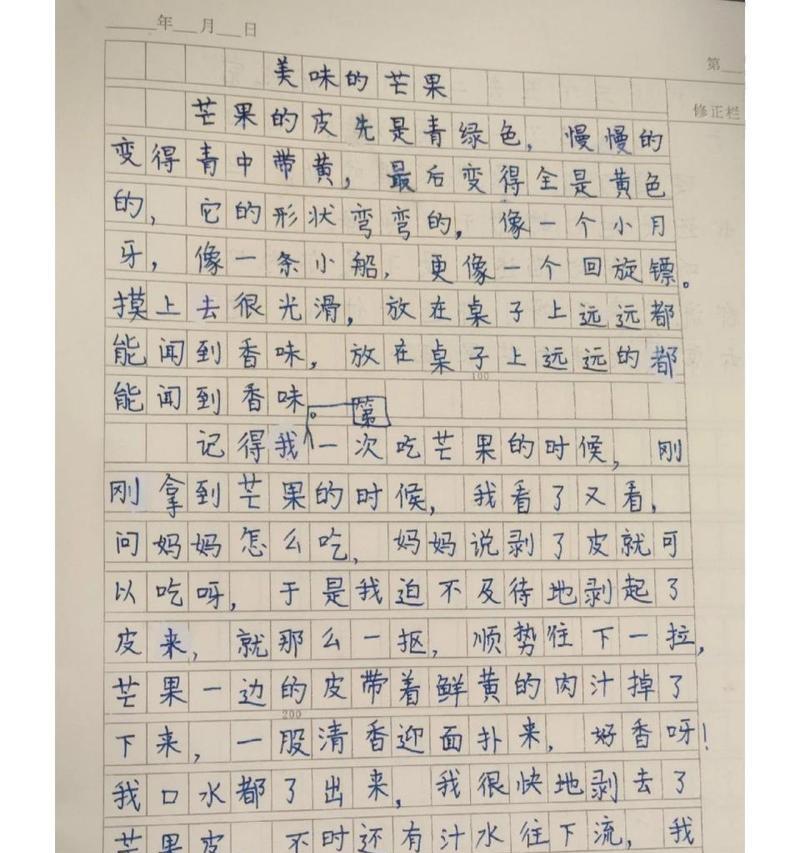 年 月 日
第
修正栏
美味的芒果
芒果的皮先是青绿色，慢慢的
变得青中带黄，最后变得全是黄色
的，它的形状弯弯的，像一个小月
牙，像一条小船，更像一个回旋镖。
摸上去很光滑，放在桌子上远远都
能闻到香味，放在桌子上远远的都
100
能闻到香味。
第
记得我一次吃芒果的时候，刚
刚拿到芒果的时候，我看了又看，
问妈妈怎么吃，妈妈说剥了皮就可
以吃呀，于是我迫不及待地剥起了
皮来，就那么一抠，顺势往下一拉，
芒果一边的皮带着鲜黄的肉汁掉了
200
下来，一股清香迎面扑来，好香呀！
我口水都了出来，我很快地剥去了
芒果皮 不时还有汁水往下流，我